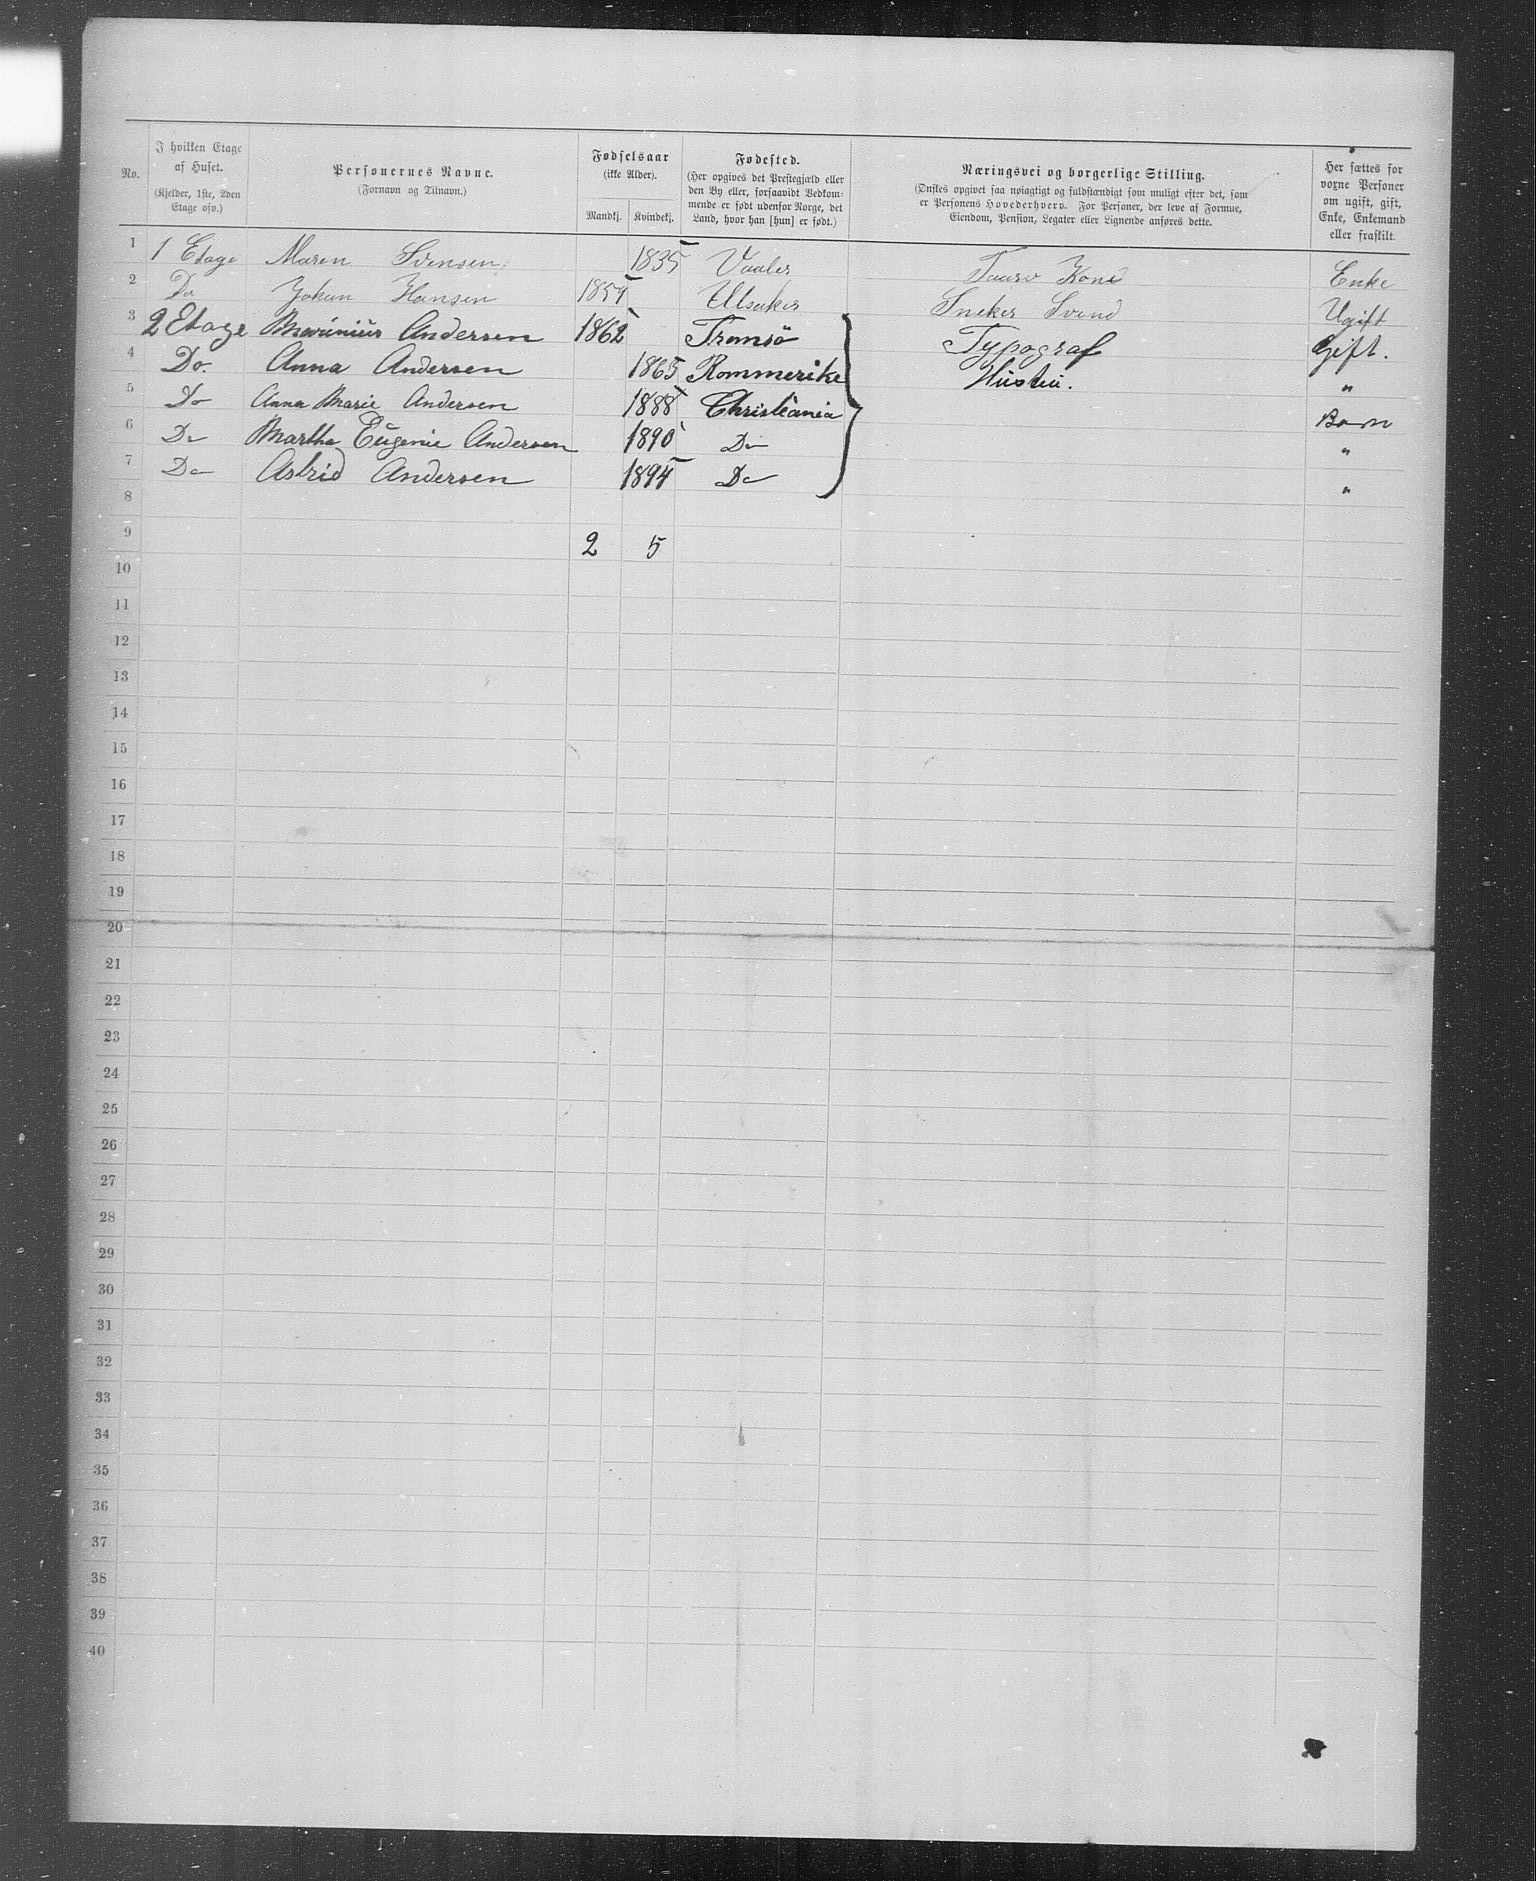 No.
I hvilken Etage af Huset.
(Kjelder, 1ste, 2den Etage osv.)
Personernes Navne.
(Fornavn og Tilnavn.)
Fødselsaar
(ikke Alder).
Mandkj. Kvindekj.
Fødested.
(Her opgives det Prestegjæld eller
den By eller, forsaavidt Vedkom-
mende er født udenfor Norge, det
Land, hvor han [hun] er født.)
Næringsvei og borgerlige Stilling.
(Ønskes opgivet saa nøiagtigt og fuldstændigt som muligt efter det, som
er Personens Hovederhverv. For Personer, der leve af Formue,
Eiendom, Pension, Legater eller Lignende anføres dette.
Her sættes for
vorne Personer
om ugift, gift,
Enke, Enkemand
eller fraskilt.
1 1 Etage Maren Svensen. 1835 Vaaler Kone Enke
2 Do Johan Hansen 1854 Ulsaker Sneker Svend Ugift
3 2 Etage Marinius Andersen 1862 Tromsö Typograf Gift.
4 Do. Anna Andersen 1865 Rommerike Hustru. "
5 Do Anna Marie Andersen 1888 Christiania Barn
6 Do Martha Eugenie Andersen 1890 Do "
7 Do Astrid Andersen 1894 Do "
8
9 2 5
10
11
12
13
14
15
16
17
18
19
20
21
22
23
24
25
26
27
28
29
30
31
32
33
34
35
36
37
38
39
40